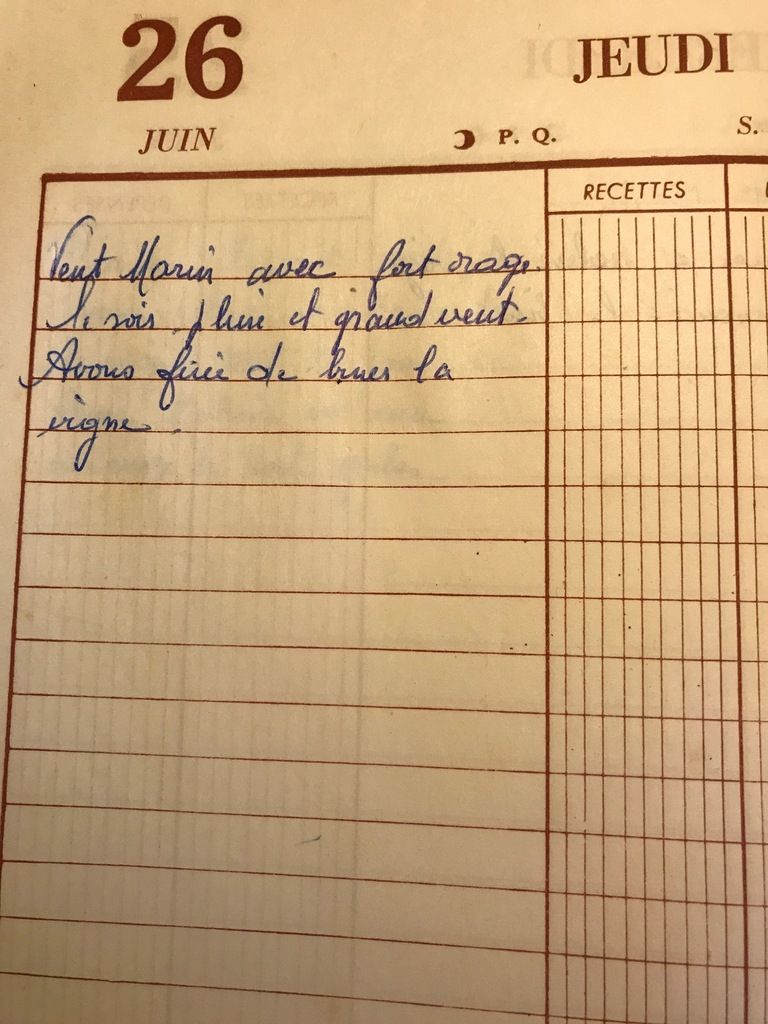 26
JEUDI
JUIN
P. Q.
S.
RECETTES
Vent Marin avec fort orage
le soir, pluie et grand vent.
Avons finie de biner la
vigne.